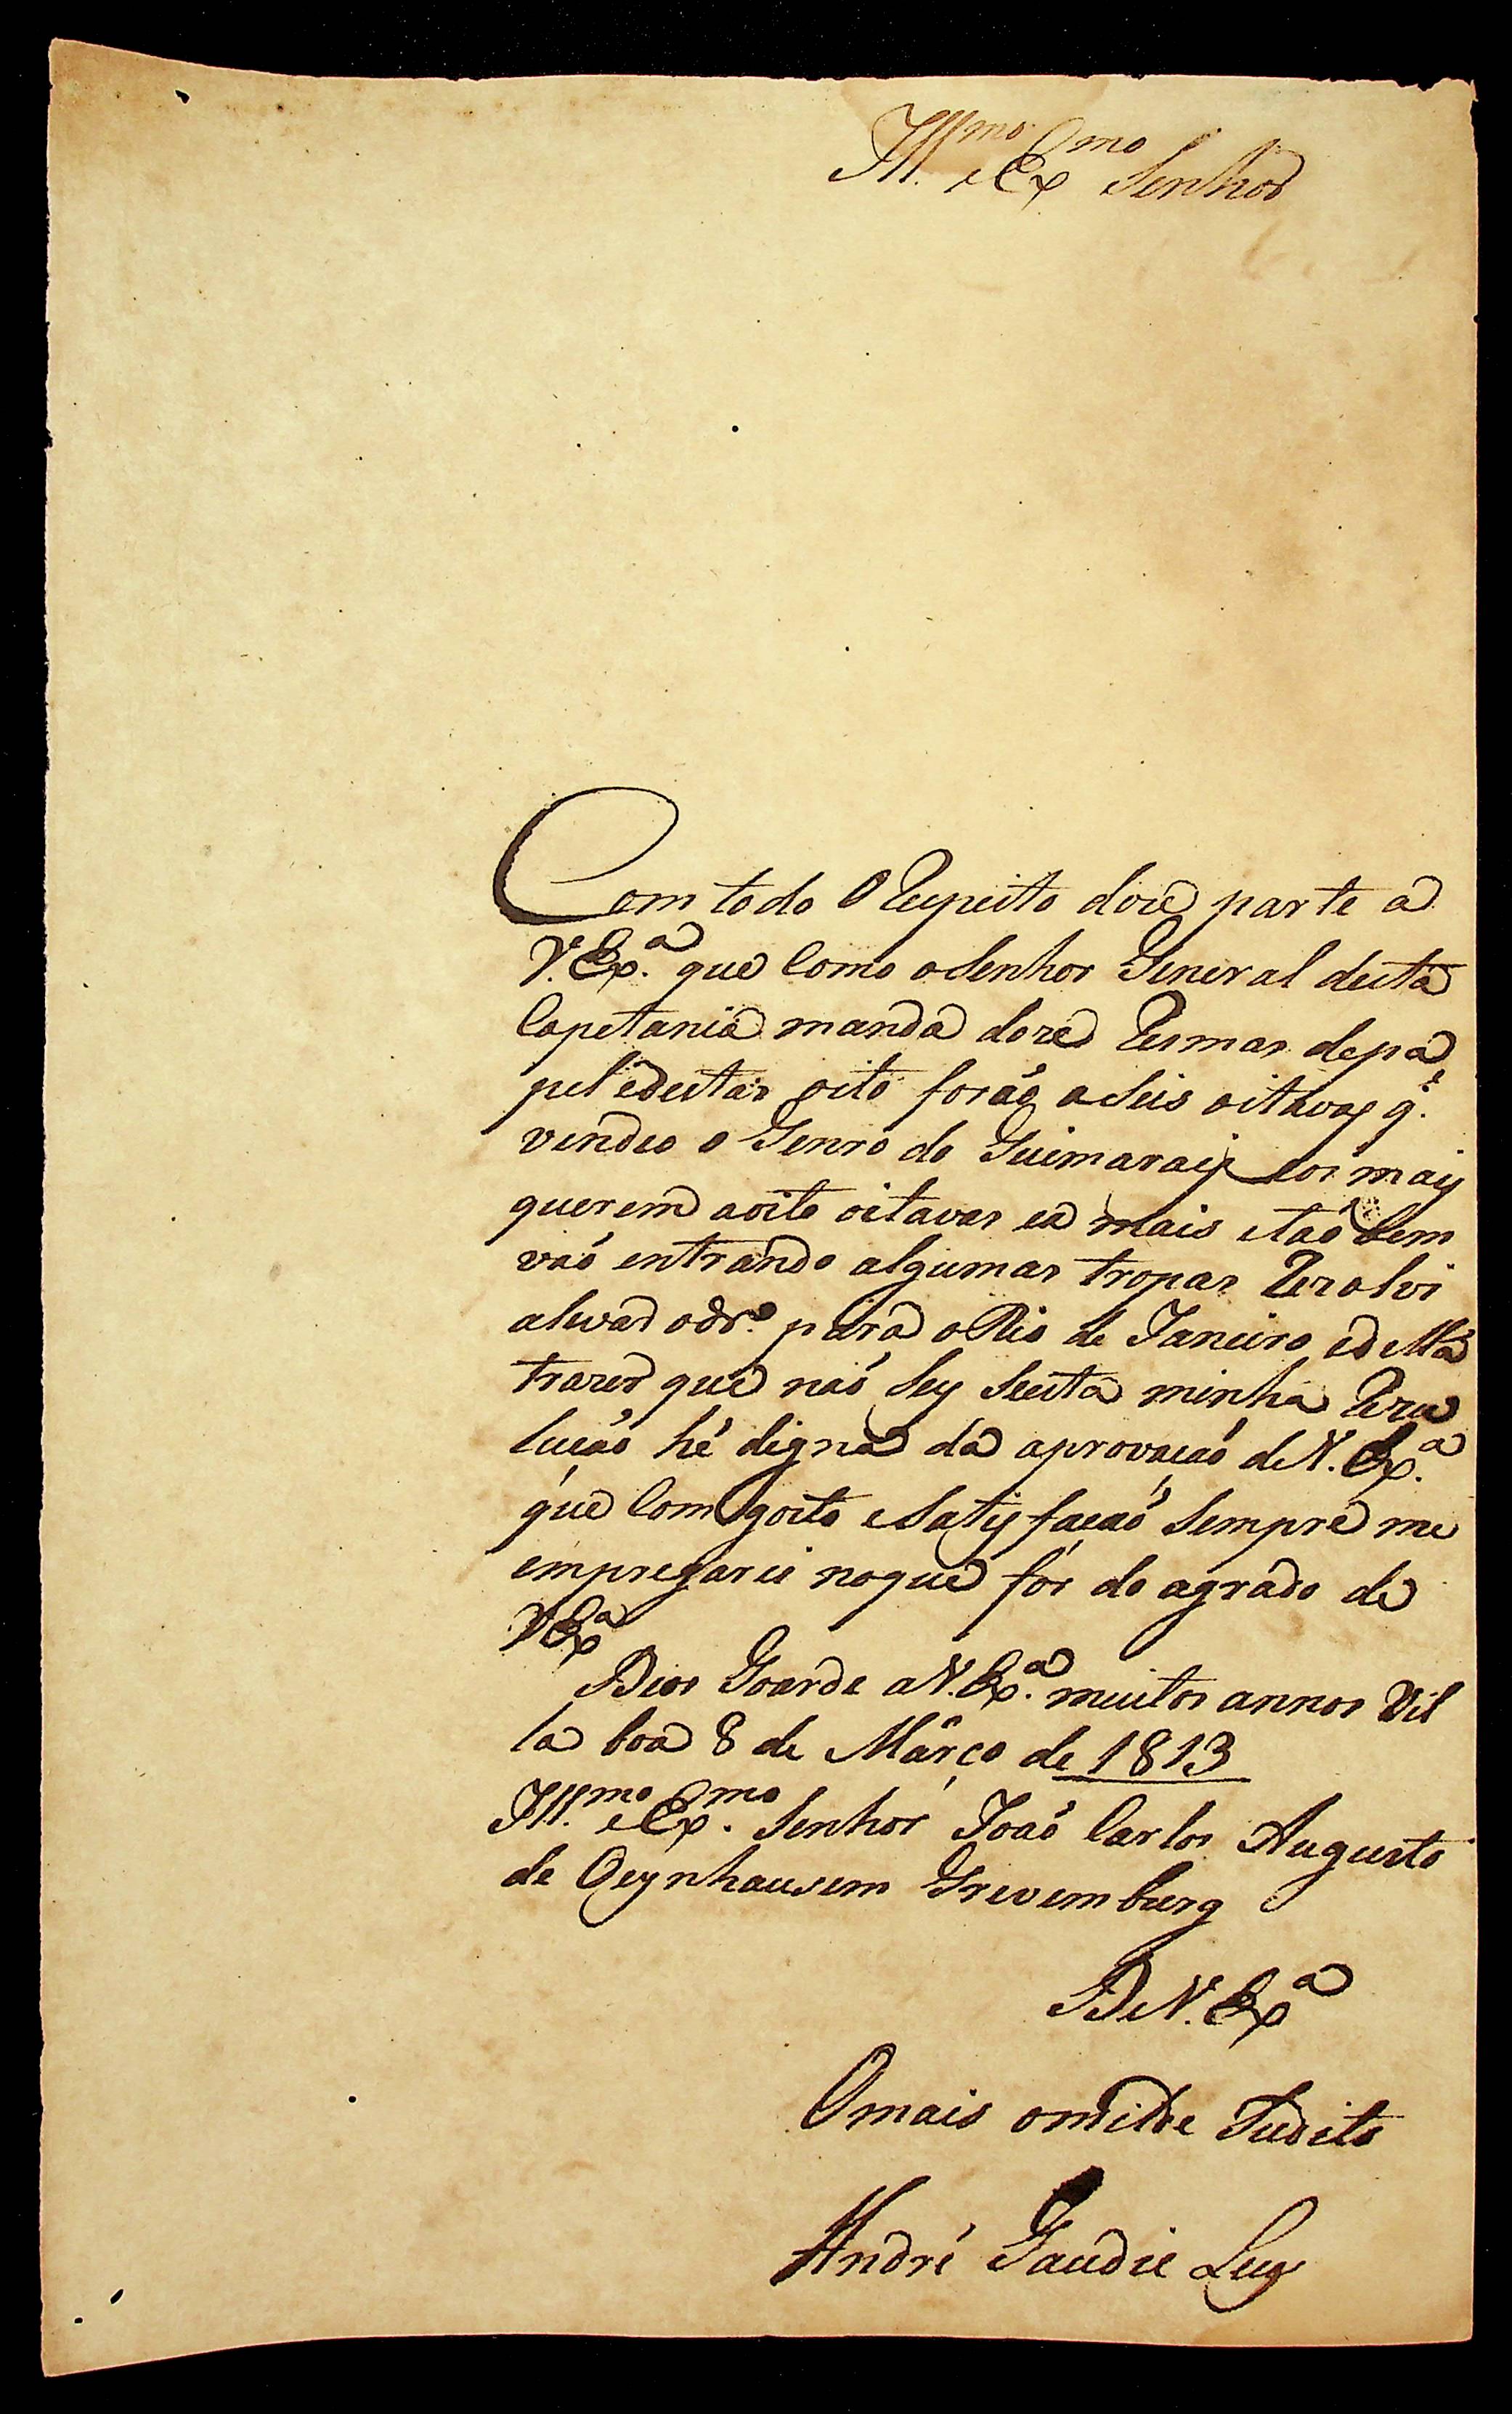 Ill.mo e Ex.mo Senhor
Com todo o Respeito dou parte a
V. Ex.a que como o Senhor General desta
Capetania manda doze Resmas de pa
pel e destas oito foráo a seis oitavas q.e
vendeo o Genro do Guimarais e os mais
querem a oito oitavas e a mais e taó bem
vaó entrando algumas tropas Rezolvi
a levar o dr.o para o Rio de Janeiro e de Lá
trazer que naó sey se esta minha Rezu
lucáo hé digna da aprovacaó de V. Ex.a
que com gosto e satisfacaó sempre me
empregarei no que for do agrado de
V Ex.a
Deos Goarde a V. Ex.a muitos annos Vil
la boa 8 de Março de 1813
Ill.mo e Ex.mo Senhor Joaó Carlos Augusto
de Oeynhausem Grevemburg
De V. Ex.a
O mais omilde Sudito
André Gaudie Ley